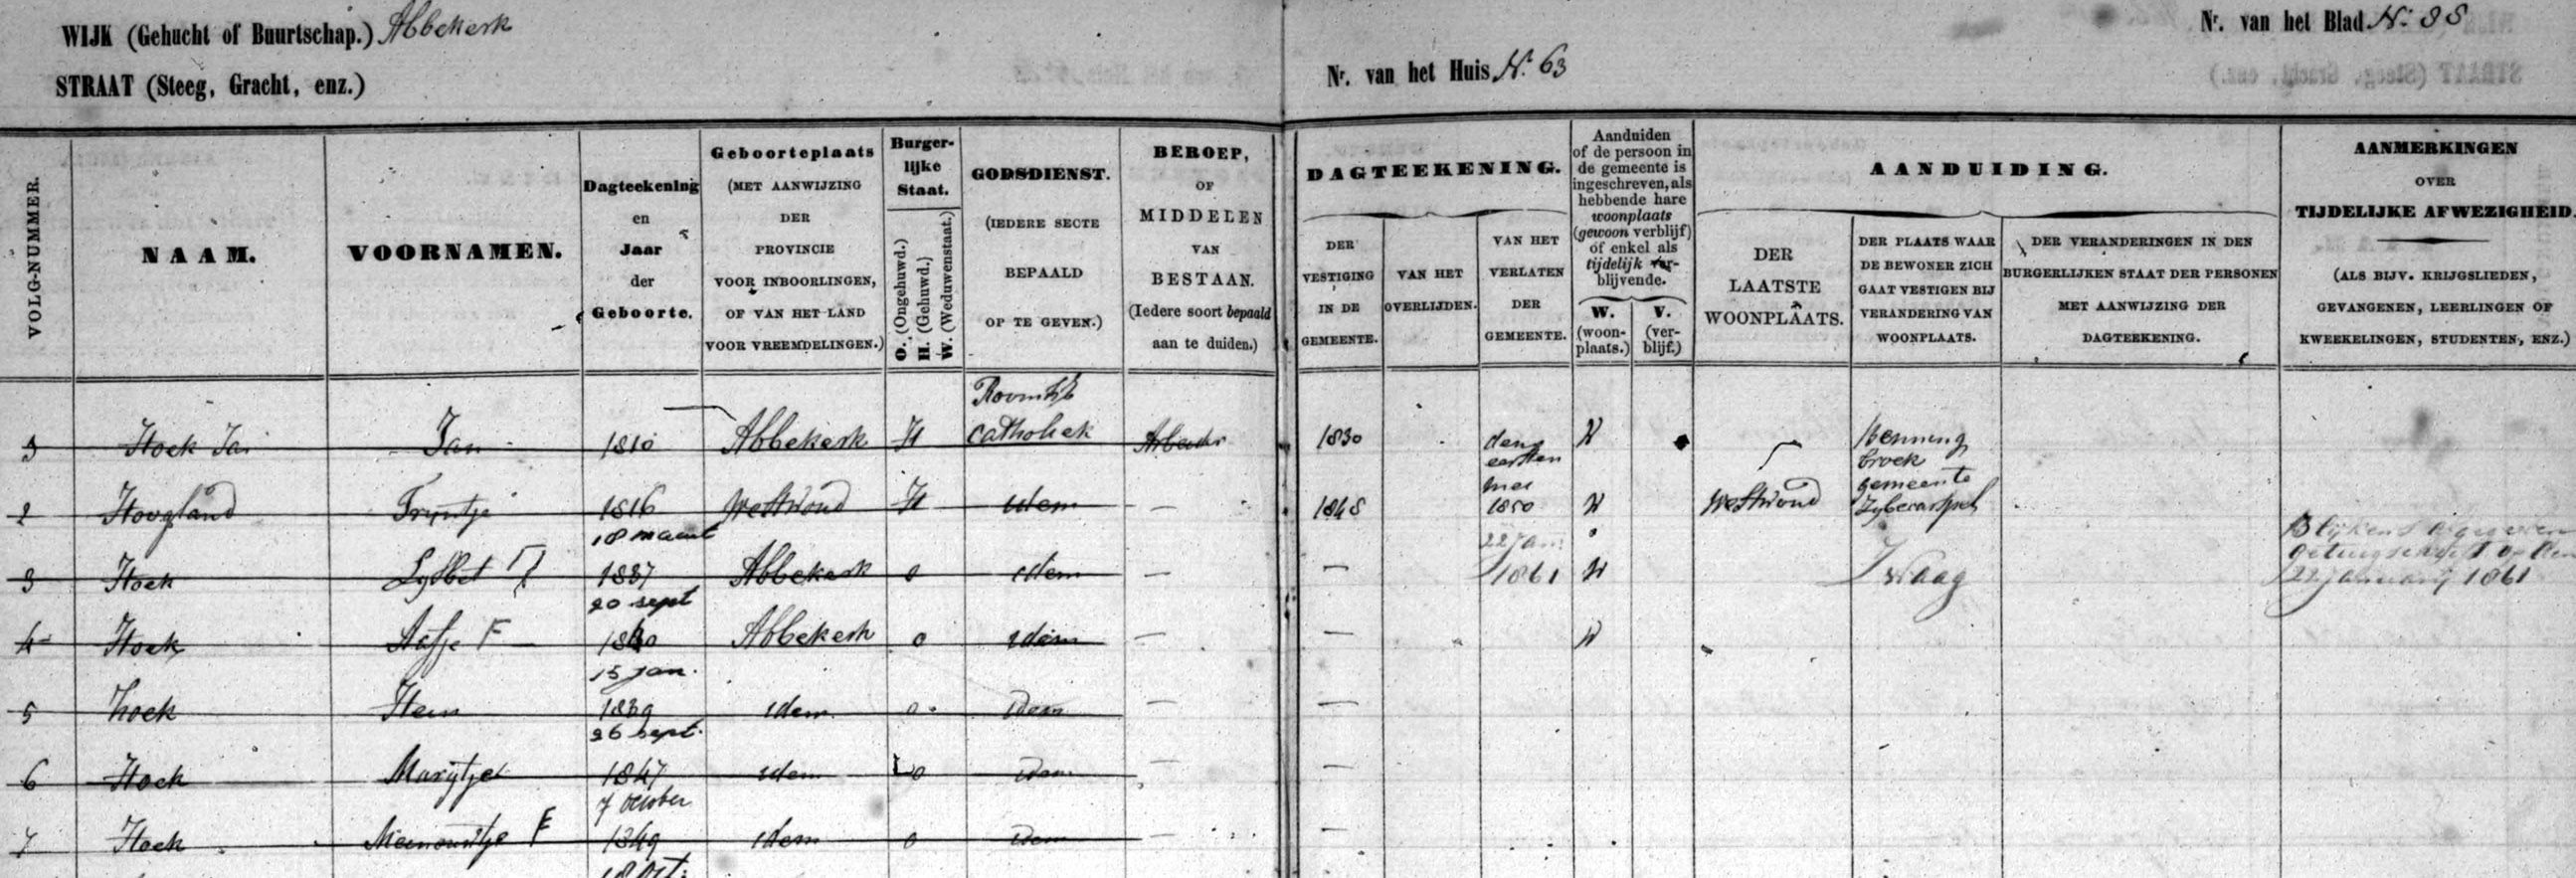 WIJK (Gehucht of Buurtschap.) Abbekerk
STRAAT (Steeg, Gracht, enz.)
Nr. van het Huis No. 63
Nr. van het Blad No.
VOLG-NUMMER.
NAAM.
VOORNAMEN.
Dagteekening
en
Jaar
der
Geboorte.
Geboorteplaats
(MET AANWIJZING
DER
PROVINCIE
VOOR INBOORLINGEN,
OF VAN HET LAND
VOOR VREEMDELINGEN.)
Burger-
lijke
Staat.
O. (Ongehuwd.)
H. (Gehuwd.)
W. (Weduwenstaat.)
GODSDIENST.
(IEDERE SECTE
BEPAALD
OP TE GEVEN.)
BEROEP,
OF
MIDDELEN
VAN
BESTAAN.
(Iedere soort bepaald
aan te duiden.)
DAGTEEKENING.
DER
VESTIGING
IN DE
GEMEENTE.
VAN HET
OVERLIJDEN.
VAN HET
VERLATEN
DER
GEMEENTE.
Aanduiden
of de persoon in
de gemeente is
ingeschreven, als
hebbende hare
woonplaats
(gewoon verblijf)
of enkel als
tijdelijk ver-
blijvende.
W.
(woon-
plaats.)
V.
(ver-
blijf.)
AANDUIDING.
DER
LAATSTE
WOONPLAATS.
DER PLAATS WAAR
DE BEWONER ZICH
GAAT VESTIGEN BIJ
VERANDERING VAN
WOONPLAATS.
DER VERANDERINGEN IN DEN
BURGERLIJKEN STAAT DER PERSONEN
MET AANWIJZING DER
DAGTEEKENING.
AANMERKINGEN
OVER
TIJDELIJKE AFWEZIGHEID.
(ALS BIJV. KRIJGSLIEDEN,
GEVANGENEN, LEERLINGEN OF
KWEEKELINGEN, STUDENTEN, ENZ.)
Hoek Jan 1810 Abbekerk H catholiek 1830 den eersten mei 1850 W Benning broek gemeente
2 Hoogland Trijntje 1816 Westwoud H idem — 1845 W Westwoud
18 maart
3 Hoek Lysbet 1837 Abbekerk o idem — — 22 jan. 1861 W Zwaag 22 january 1861
20 sept
4 Hoek F 1840 Abbekerk o idem — — W
15 jan.
5 hoek 1839 idem o idem — —
26 sept.
6 Hoek Marijtje 1847 idem o idem — —
7 October
7 Hoek F 1849 idem o idem — —